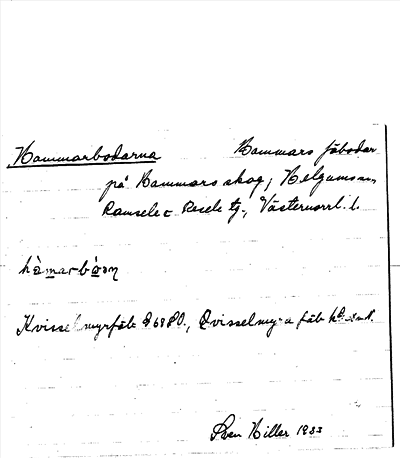 Hammarbodarna Hammars fäbodar
på Hammars skog, Helgums sn,
Ramsele o Resele tg., Västernorrl. l.
Kvisselmyrfäb S 68 80., Qvisselmyra fäb
Sven Hiller 1933